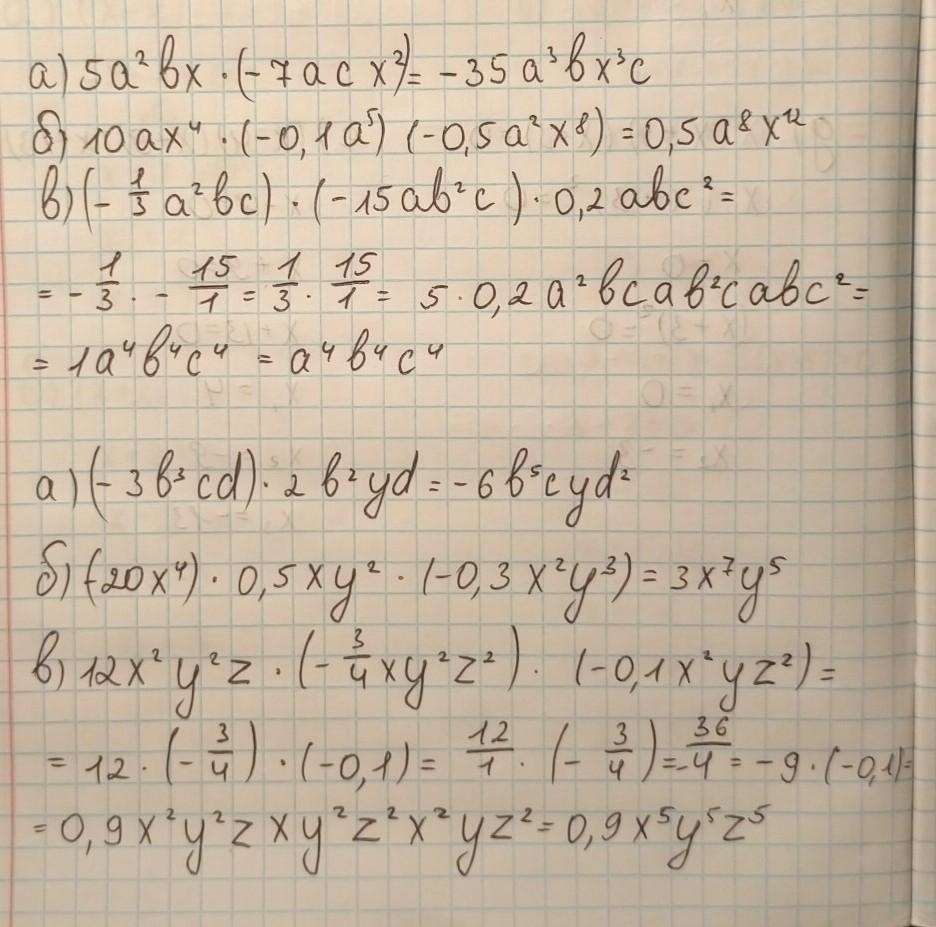 а) 5a²bx · (-7acx²) = -35a³bx³c
б) 10ax⁴ · (-0,1a⁵) (-0,5a²x⁸) = 0,5a⁸x¹²
в) (-1/3a²bc) · (-15ab²c) · 0,2abc² =
= -1/3 · -15/1 = 1/3 · 15/1 = 5 · 0,2a²bcab²cabc² =
= 1a⁴b⁴c⁴ = a⁴b⁴c⁴
а) (-3b³cd) · 2b²yd = -6b⁵cyd²
б) (-20x⁴) · 0,5xy² · (-0,3x²y³) = 3x⁷y⁵
в) 12x²y²z · (-3/4xy²z²) · (-0,1x²yz²) =
= 12 · (-3/4) · (-0,1) = 12/1 · (-3/4) = -36/4 = -9 · (-0,1) =
= 0,9x²y²zxy²z²x²yz² = 0,9x⁵y⁵z⁵